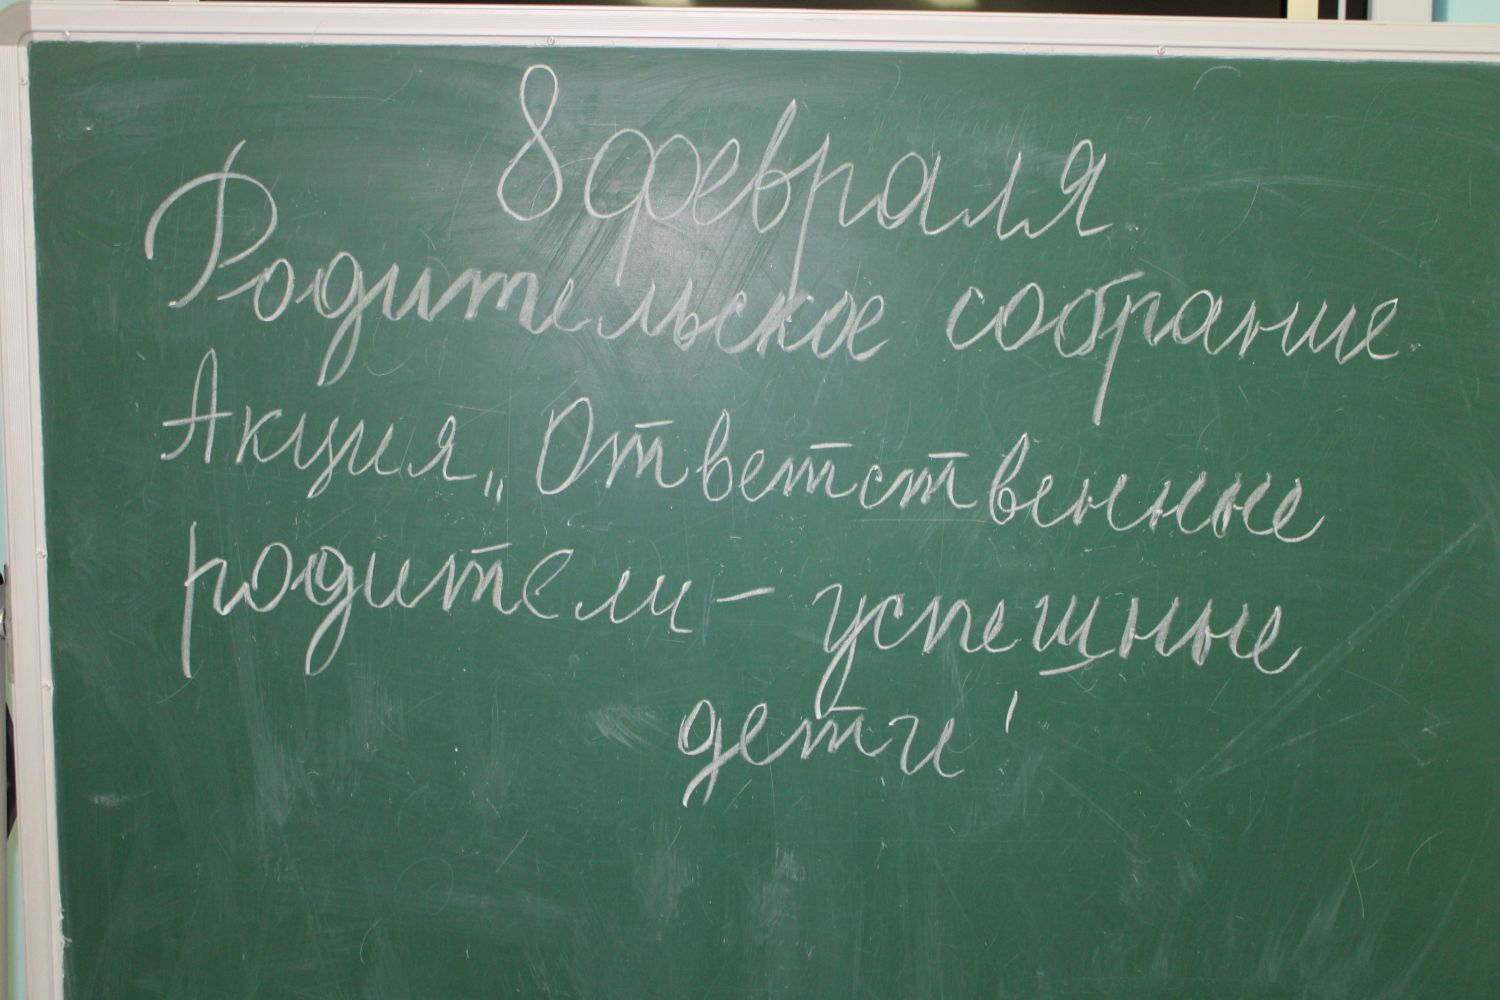 8 февраля.
Родительское собрание.
Акция „Ответственные
родители – успешные
дети!